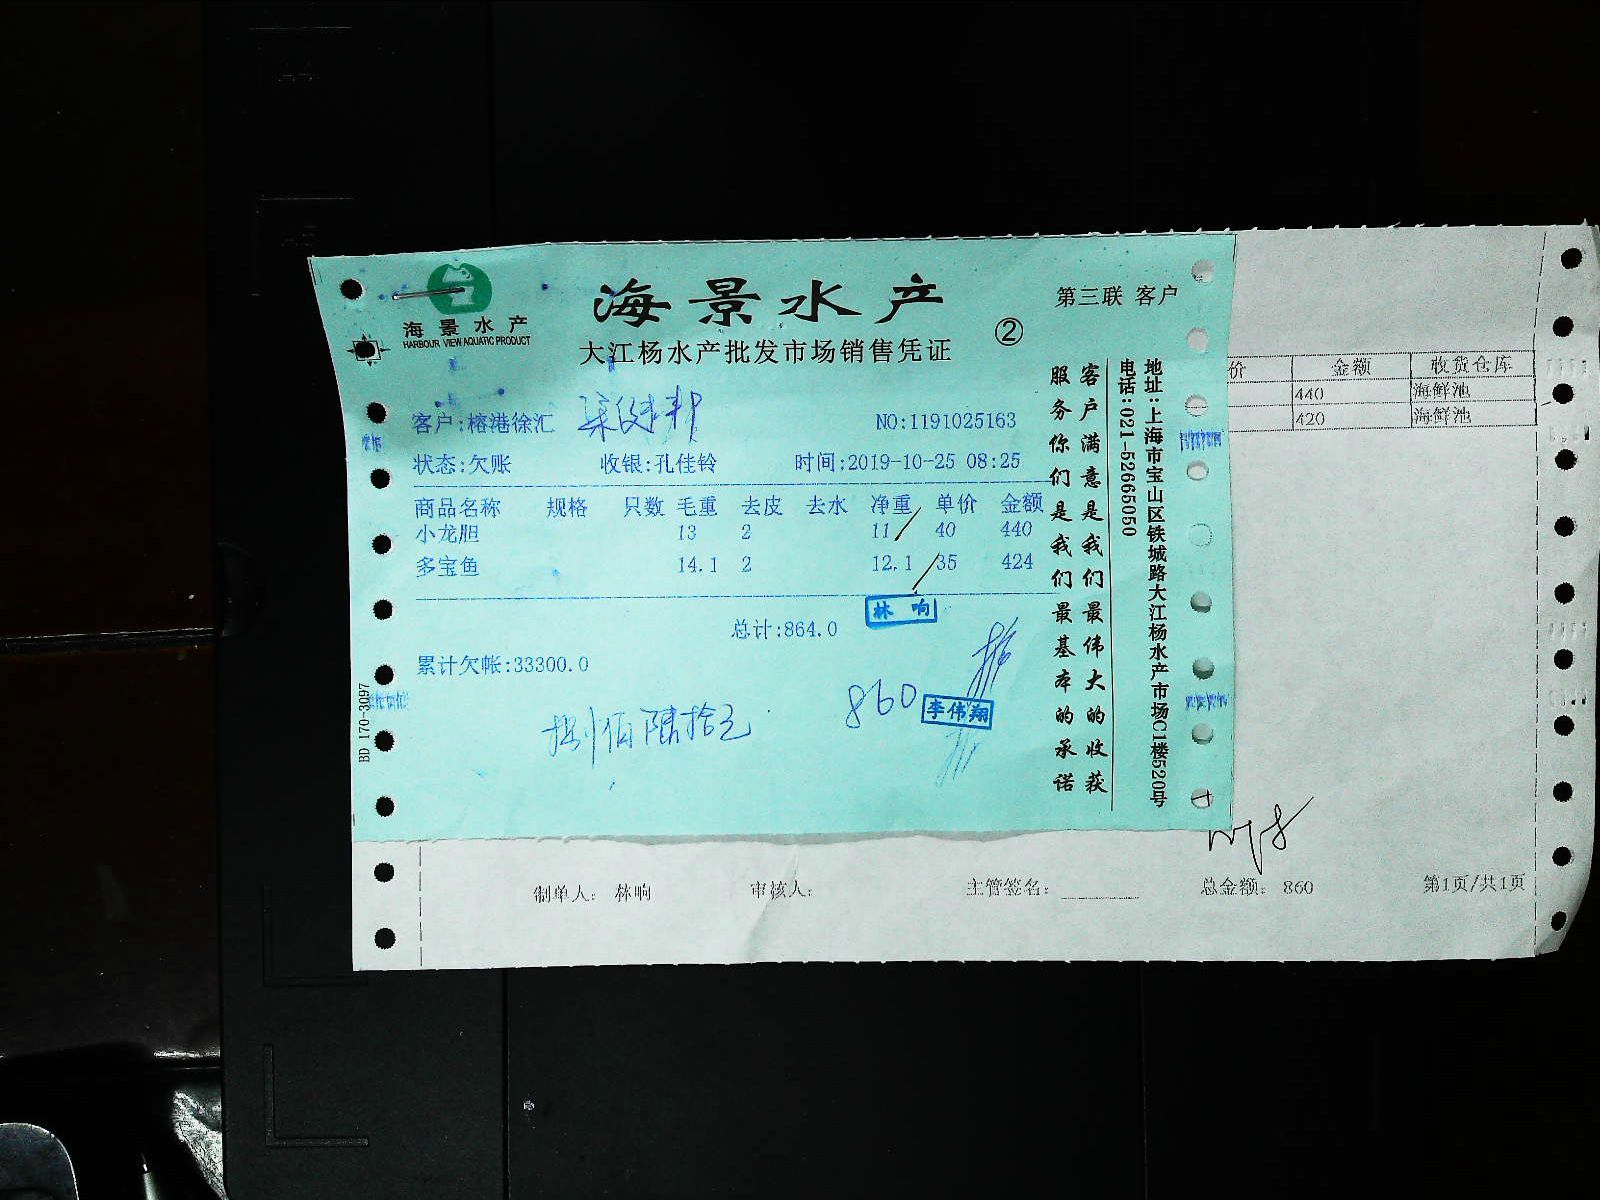 海景水产
HARBOUR VIEW AQUATIC PRODUCT
海景水产
第三联 客户
大江杨水产批发市场销售凭证
②
客户:榕港徐汇
NO:1191025163
状态:欠账 收银:孔佳铃 时间:2019-10-25 08:25
商品名称 规格 只数 毛重 去皮 去水 净重 单价 金额
小龙胆 13 2 11 40 440
多宝鱼 14.1 2 12.1 35 424
林响
总计:864.0
累计欠帐:33300.0
860
李伟翔
捌佰陆拾元
BD 170-3097
客户满意是我们最伟大的收获
服务你们是我们最基本的承诺
地址:上海市宝山区铁城路大江杨水产市场C1楼520号
电话:021-52665050
价 金额 收货仓库
440 海鲜池
420 海鲜池
制单人: 林响 审核人: 主管签名: 总金额: 860 第1页/共1页